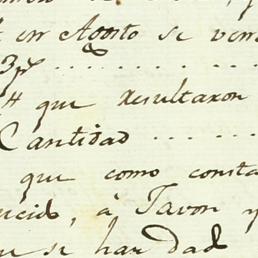 en Agosto se ven
3p . . . . . . . . . .
que resultaron
Cantidad . . . . .
que como consta
ucido, a Favor y
se han dad